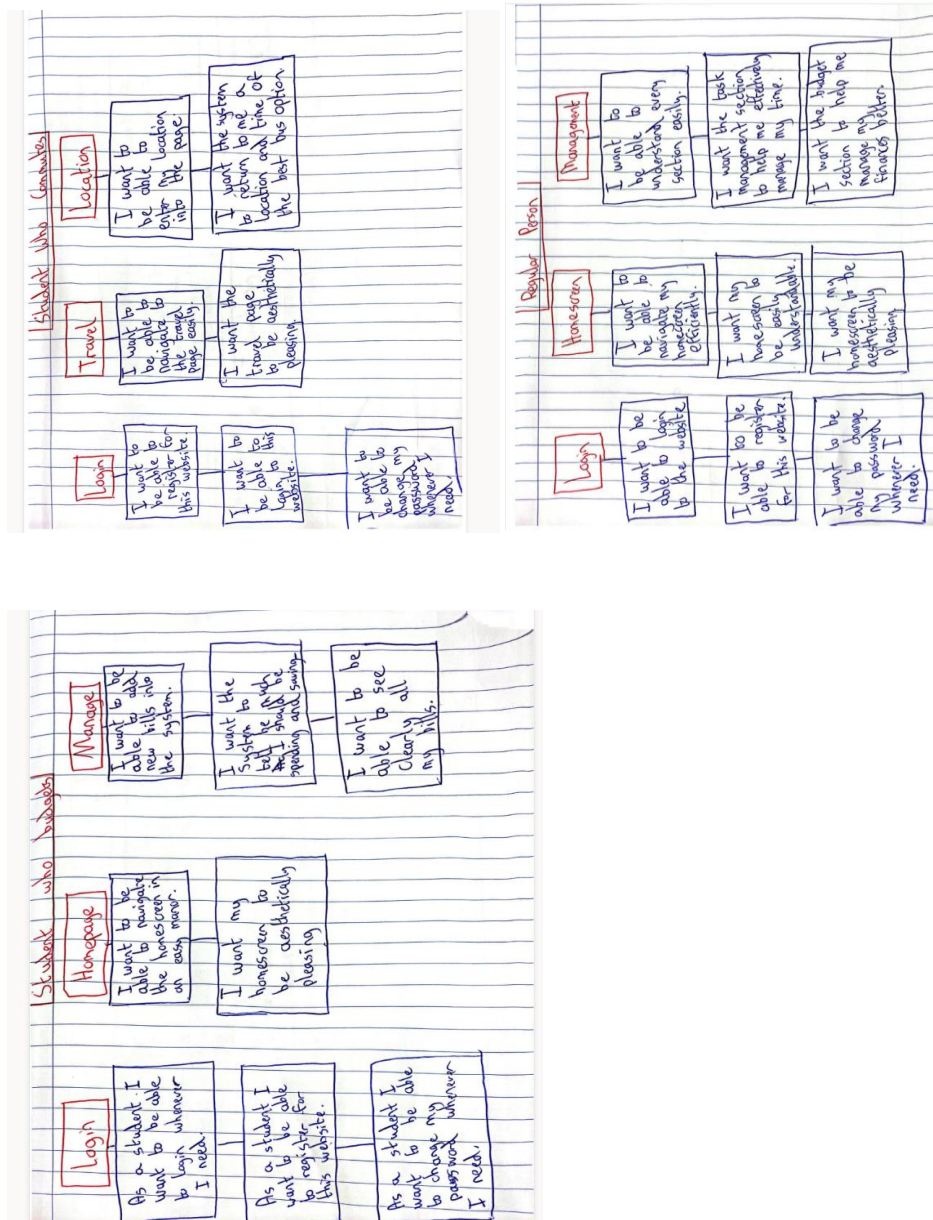 Student Who Commutes
Login
I want to
be able to
register for
this website.
I want to
be able to
Login to this
website.
I want to
be able to
change my
password
whenever I
need.
Travel
I want to
be able to
navigate to
the travel
page easily.
I want the
travel page
to be aesthetically
pleasing.
Location
I want to
be able to
enter my location
into the page.
I want the system
to return to me a
location and time of
the best bus option.
Regular Person
Login
I want to be
able to login
to the website
I want to be
able to register
for this website.
I want to be
able to change
my password
whenever I
need.
Homescreen
I want to
be able to
navigate my
homescreen
efficiently.
I want my
homescreen to
be easily
understandable.
I want my
homescreen to be
aesthetically
pleasing
Management
I want to
be able to
understand every
section easily.
I want the task
management section
to help me effectively
manage my time.
I want the budget
section to help me
manage my
finances better.
Student who budgets
Login
As a student I
want to be able
to login whenever
I need.
As a student I
want to be able
to register for
this website.
As a student I
want to be able
to change my
password whenever
I need.
Homepage
I want to be
able to navigate
the homescreen in
an easy manor.
I want my
homescreen to
be aesthetically
pleasing
Manage
I want to be
able to add
new bills into
the system.
I want the
system to
tell me much
I should be
spending and saving
I want to be
able to see
clearly all
my bills.